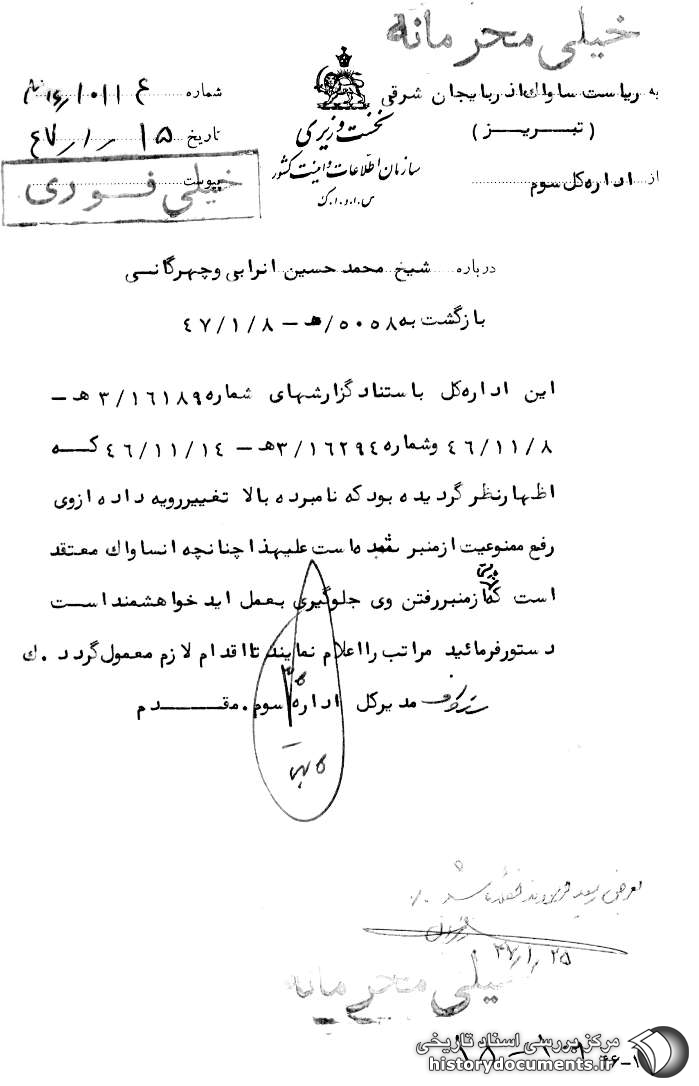 خیلی محرمانه
به ریاست ساواک اذربایجان شرقی
( تبریز )
از اداره کل سوم
نخست وزیری
سازمان اطلاعات و امنیت کشور
س.ا.و.ا.ک
شماره
تاریخ ۴۷/۱/۱۵
پیوست
خیلی فوری
درباره شیخ محمد حسین انرابی وچهرگانی
بازگشت به ۵۰۵۸/هـ – ۴۷/۱/۸
این اداره کل باستناد گزارشهای شماره ۳/۱۶۱۸۹ هـ –
۴۶/۱۱/۸ وشماره ۳/۱۶۲۹۴هـ – ۴۶/۱۱/۱۴ که
اظهارنظر گردیده بود که نامبرده بالا تغییر رویه داده ازوی
رفع ممنوعیت از منبر است علیهذا چنانچه انساواک معتقد
است که از منبررفتن وی جلوگیری بعمل اید خواهشمند است
دستورفرمائید مراتب را اعلام نمایند تا اقدام لازم معمول گردد .ک
مدیر کل اداره سوم . مقدم
۴۷/۱/۲۵
خیلی محرمانه
مرکز بررسی اسناد تاریخی
historydocuments.ir